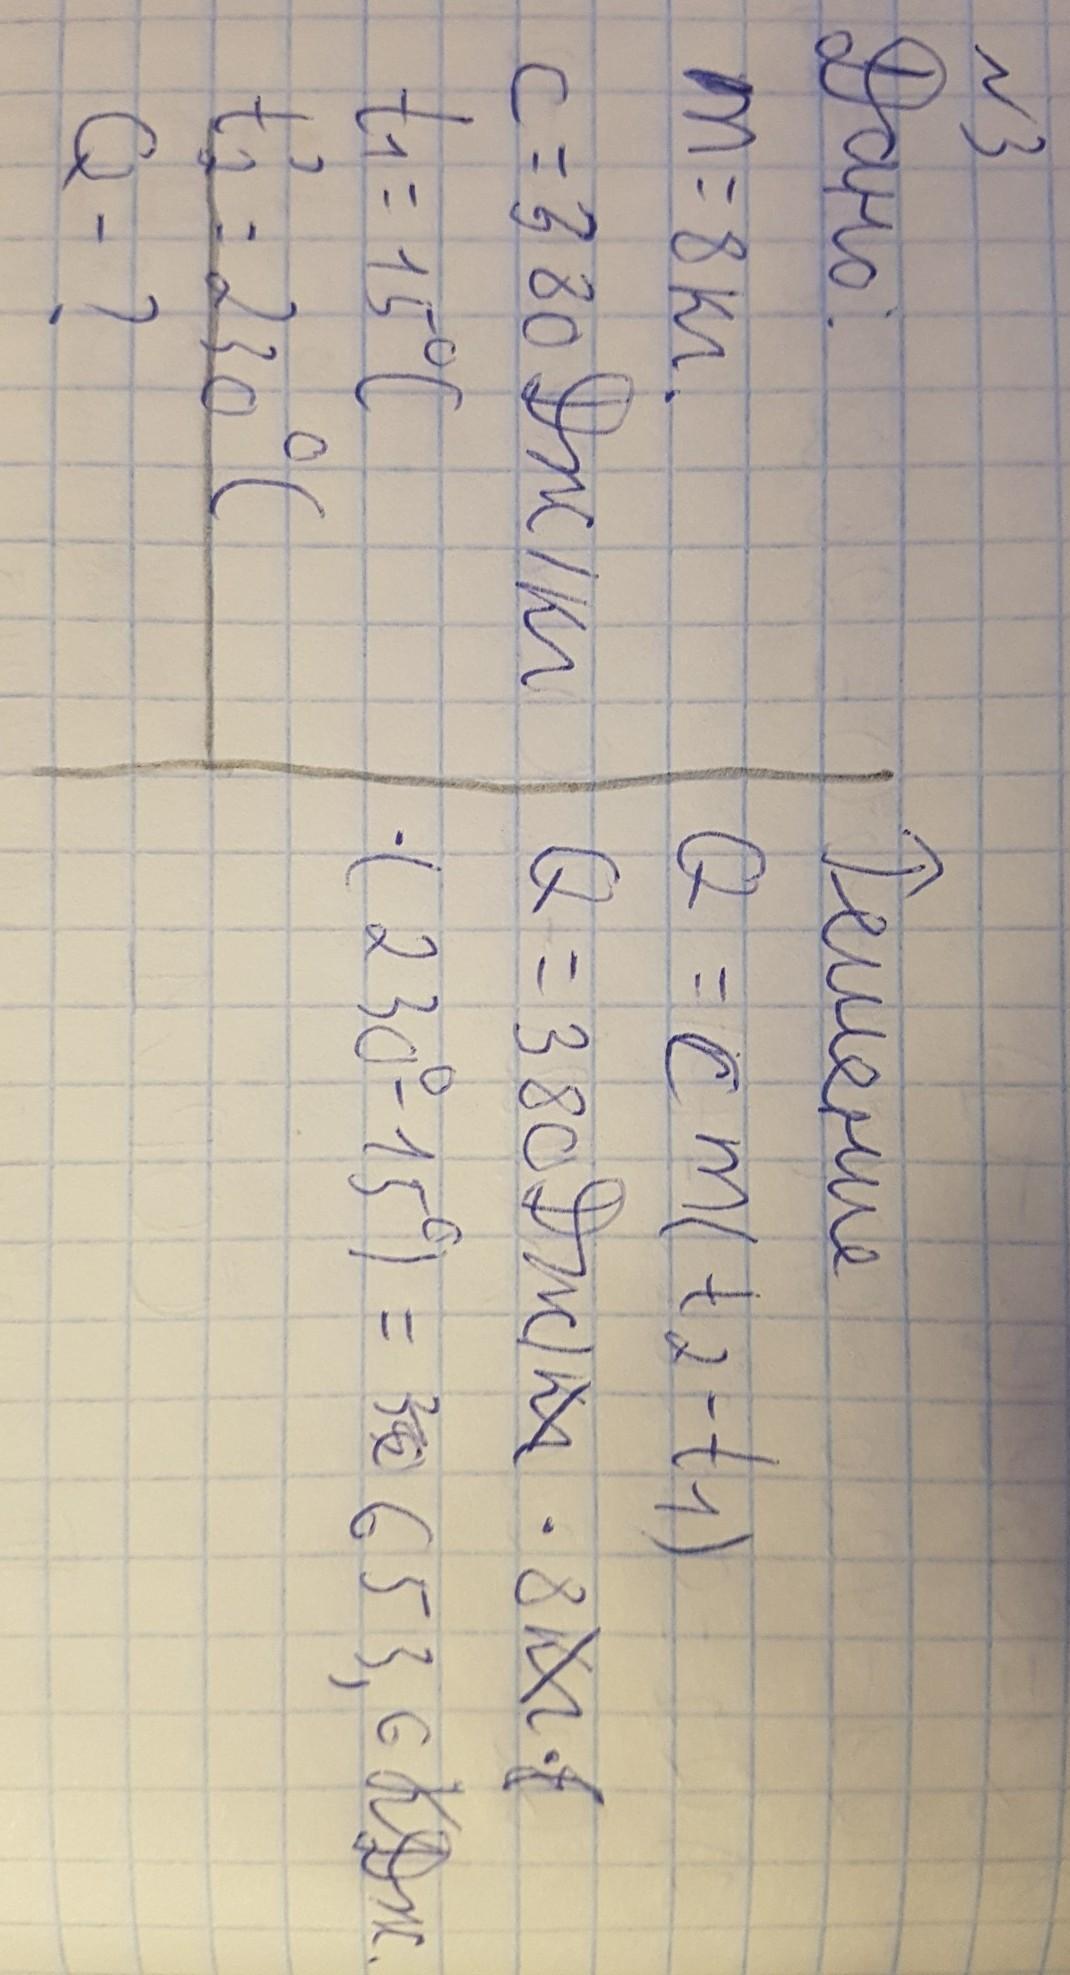 №3
Дано:
m = 8 кг.
c = 380 Дж/кг
t1 = 15°C
t2 = 230°C
Q - ?
Решение
Q = cm(t2 - t1)
Q = 380 Дж/кг · 8 кг ·
· (230° - 15°) = 653,6 кДж.